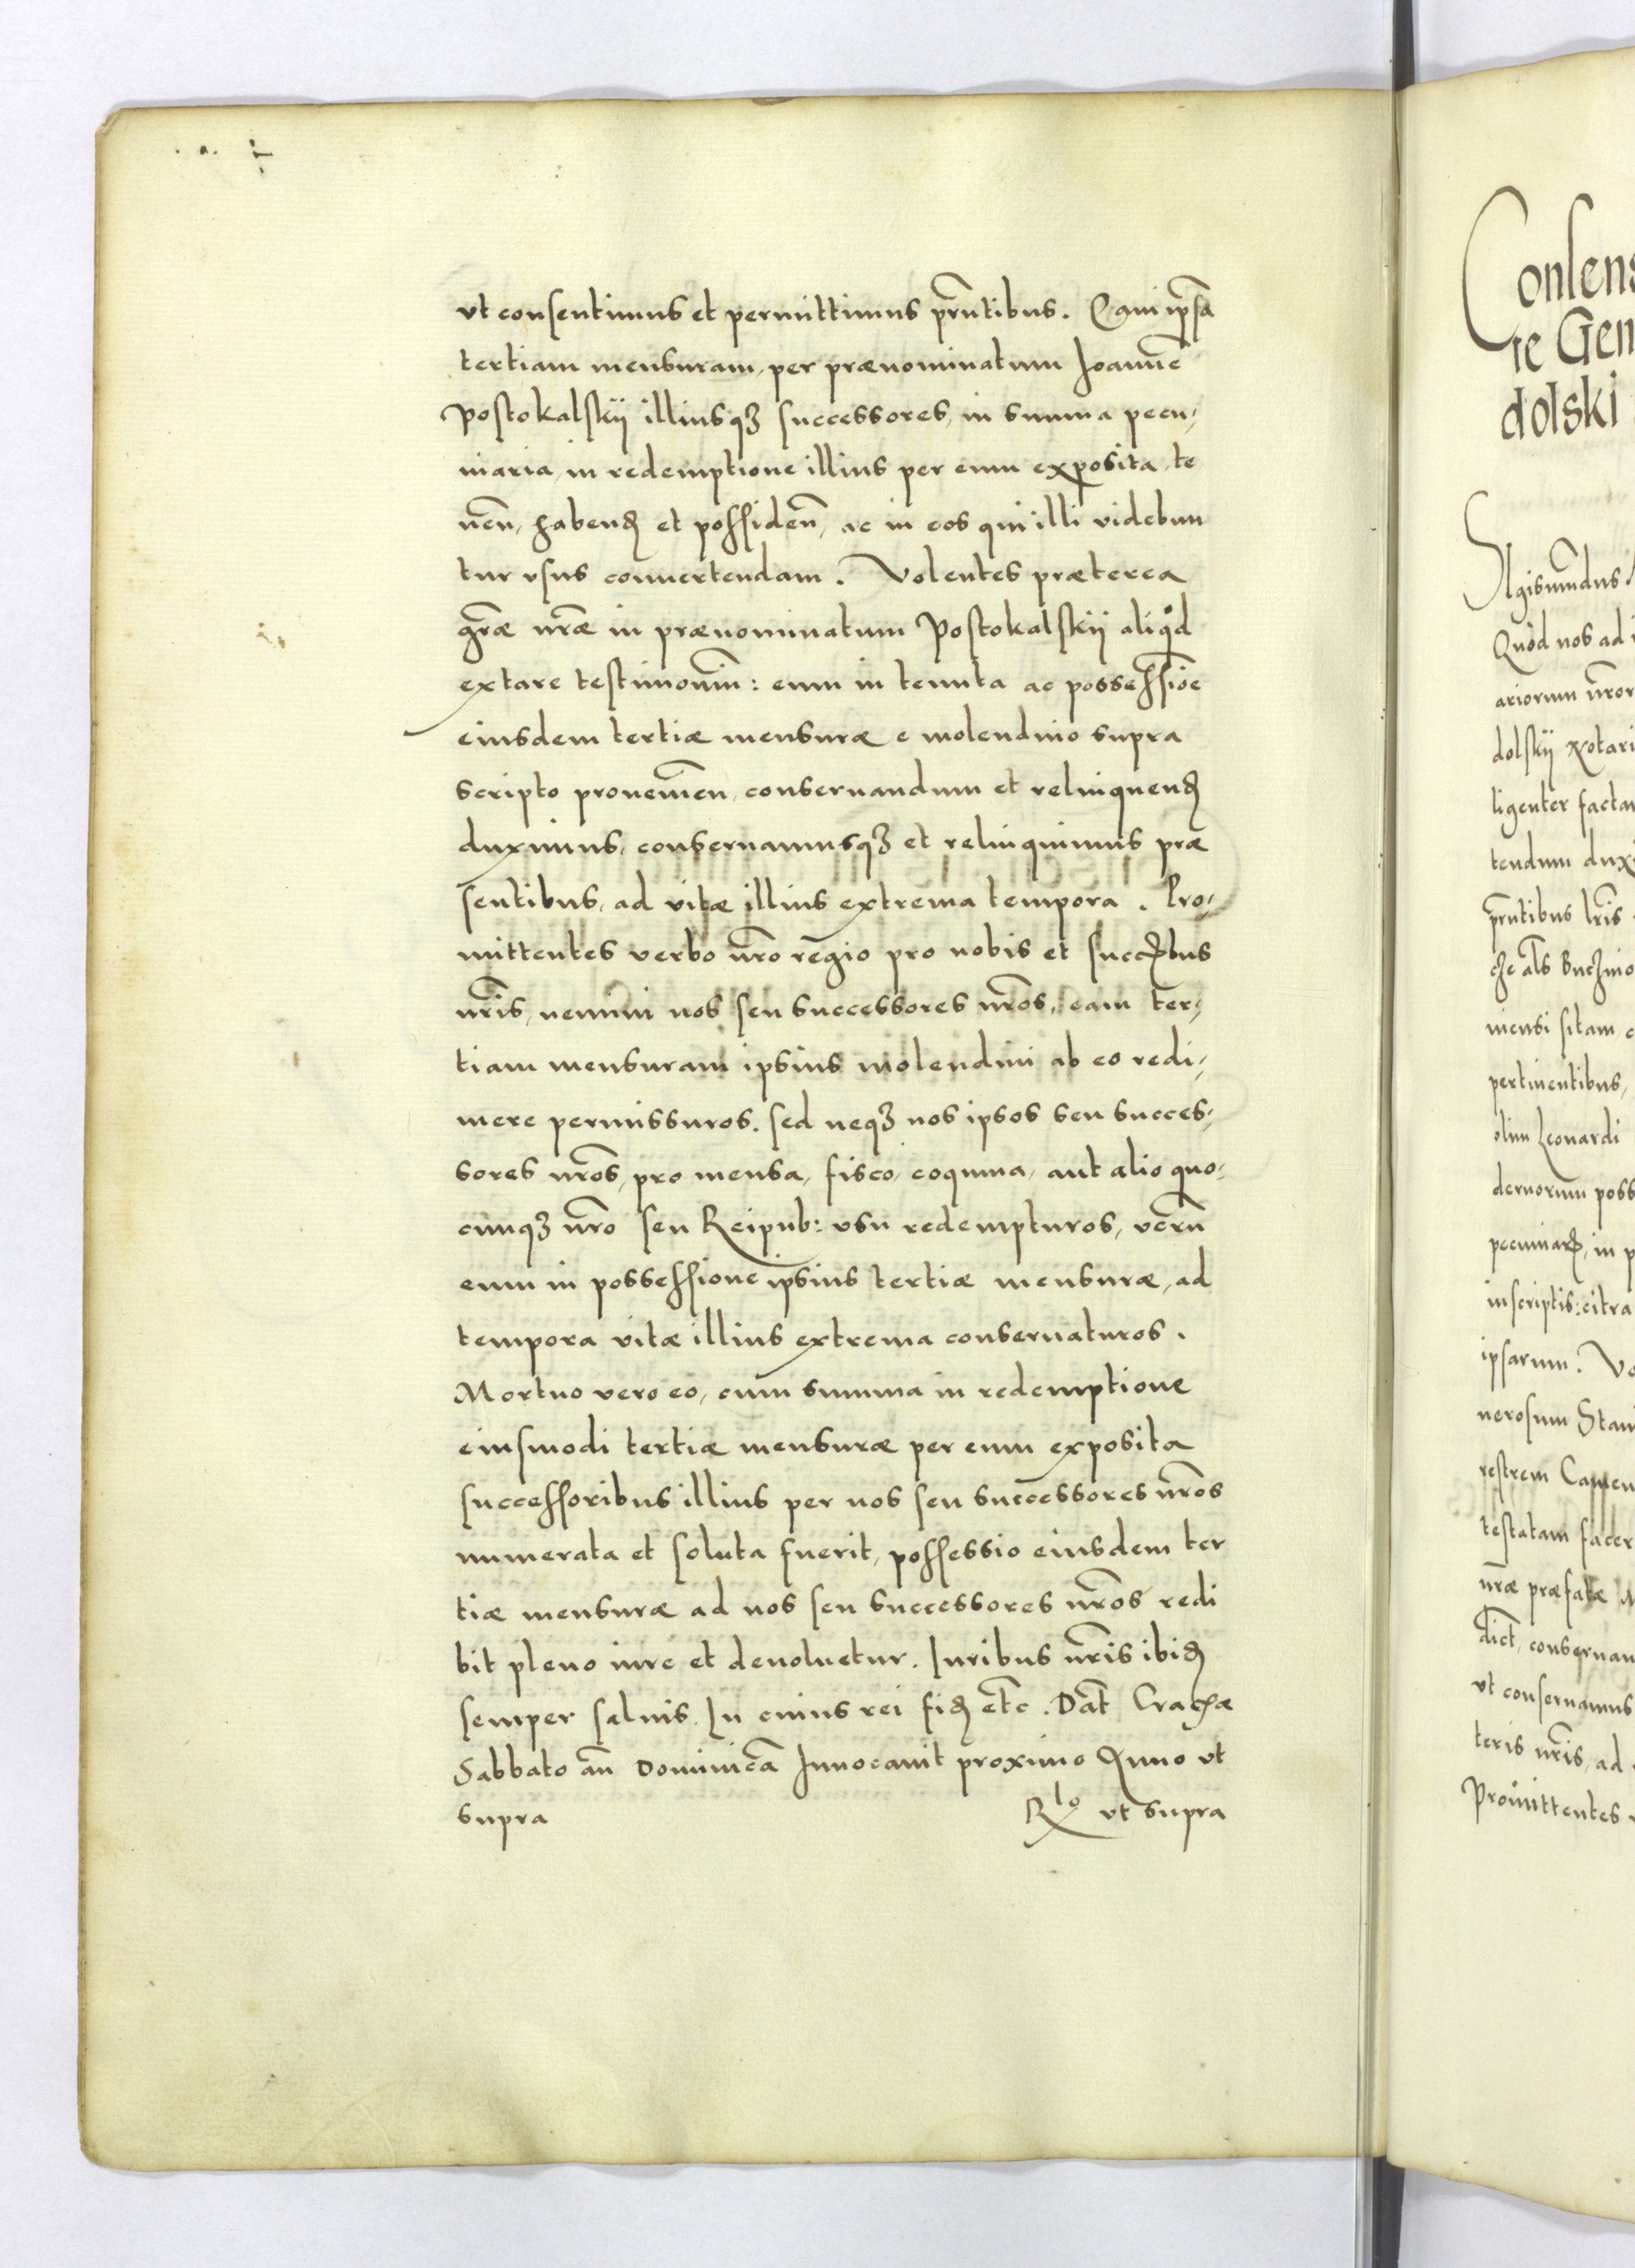 vt consentimus et permittimus prñtibus. Quiipsã
tertiam mensuram, per prænominatum Joannẽ
Postokalskÿ illiusqȝ successores, in summa pecu,
niaria, in redemptione illius per eum exposita, te
neñ, habenđ et possideñ, ac in eos qui illi videbun
tur vsus conuertendam. Volentes præterea
grãæ nrãæ in prænominatum Postokalskÿ aliqđ
extare testimoniũ: eum in tenuta ac possessiõe
eiusdem tertiæ mensuræ e molendino supra
scripto prouenieñ, conseruandum et relinquenđ
duximus, conseruamusqȝ et relinquimus præ
sentibus, ad vitæ illius extrema tempora. Pro,
mittentes verbo nrõ regio pro nobis et succribus
nrĩs, nemini nos seu successores nrõs, eam ter,
tiam mensuram ipsius molendini ab eo redi,
mere permissuros. sed neqȝ nos ipsos seu succes,
sores nrõs, pro mensa, fisco, coquina, aut alio quo,
cunqȝ nrõ seu Reipub: vsu redempturos, verũ
eum in possessione ipsius tertiæ mensuræ, ad
tempora vitæ illius extrema conseruaturos.
Mortuo vero eo, cum summa in redemptione
eiusmodi tertiæ mensuræ per eum exposita
successoribus illius per nos seu successores nrõs
numerata et soluta fuerit, possessio eiusdem ter
tiæ mensuræ ad nos seu successores nrõs redi
bit pleno iure et deuoluetur. Juribus nrĩs ibiđ
semper saluis. In cuius rei fiđ etc̃. Dat̃ Craciæ
Sabbato añ Dominicã Inuocauit proximo Anno vt
supra
Rlo vt supra
Consens
te Gen
dolski
Sigismũdus
Quòd nos ad
ariorum nrõr
dolskÿ Notari
ligenter factam
tendum dux
prñtibus lrĩs
che al̃s Buchino
mensi sitam
pertinentibus,
olim Leonardi
dernorum poss
pecuniar, in p
inscriptis: citra
ipsarum. Vo
nerosum Stan
restrem Camen
testatam facer
nrãæ præfatæ
dict̃, conseruan
vt conseruamus
teris nrĩs, ad
Promittentes